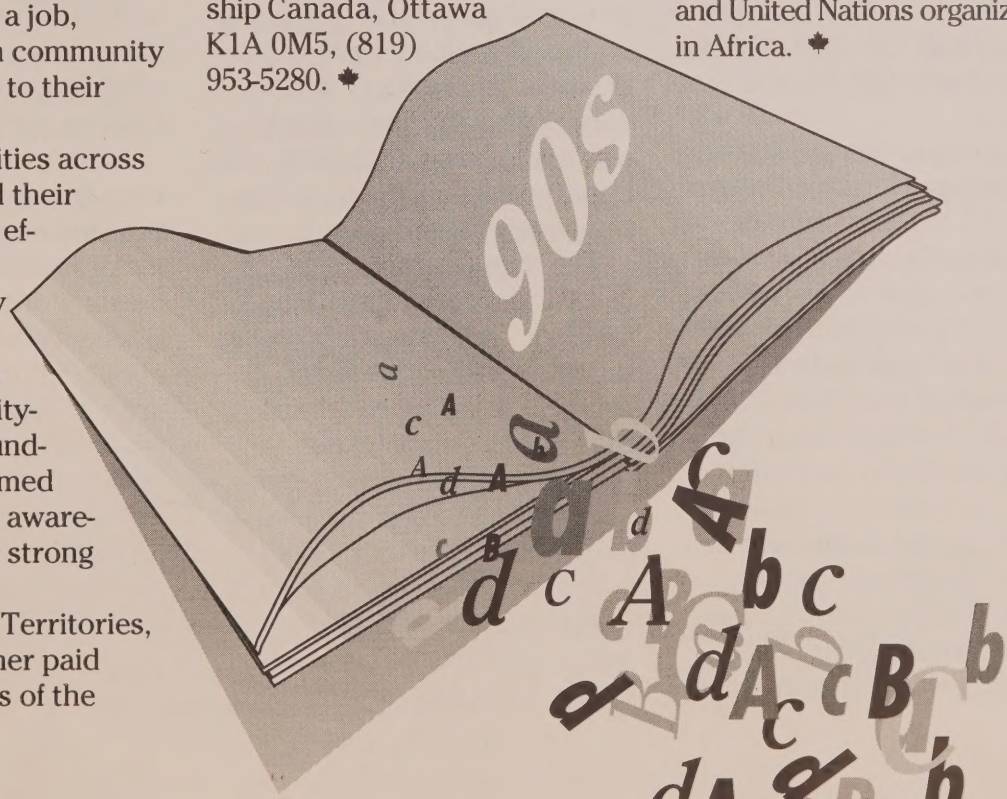 a job,
community
to their
ities across
their
ef-
ity-
und-
med
aware-
strong
Territories,
her paid
s of the
ship Canada, Ottawa
K1A 0M5, (819)
953-5280.
and United Nations organiz
in Africa.
90s
a
A
c
a
b
b
A
d
A
a
b
d
c
A
a
c
B
d
c
A
b
c
c
B
a
b
d
A
b
c
B
b
a
B
c
C
a
d
A
a
B
b